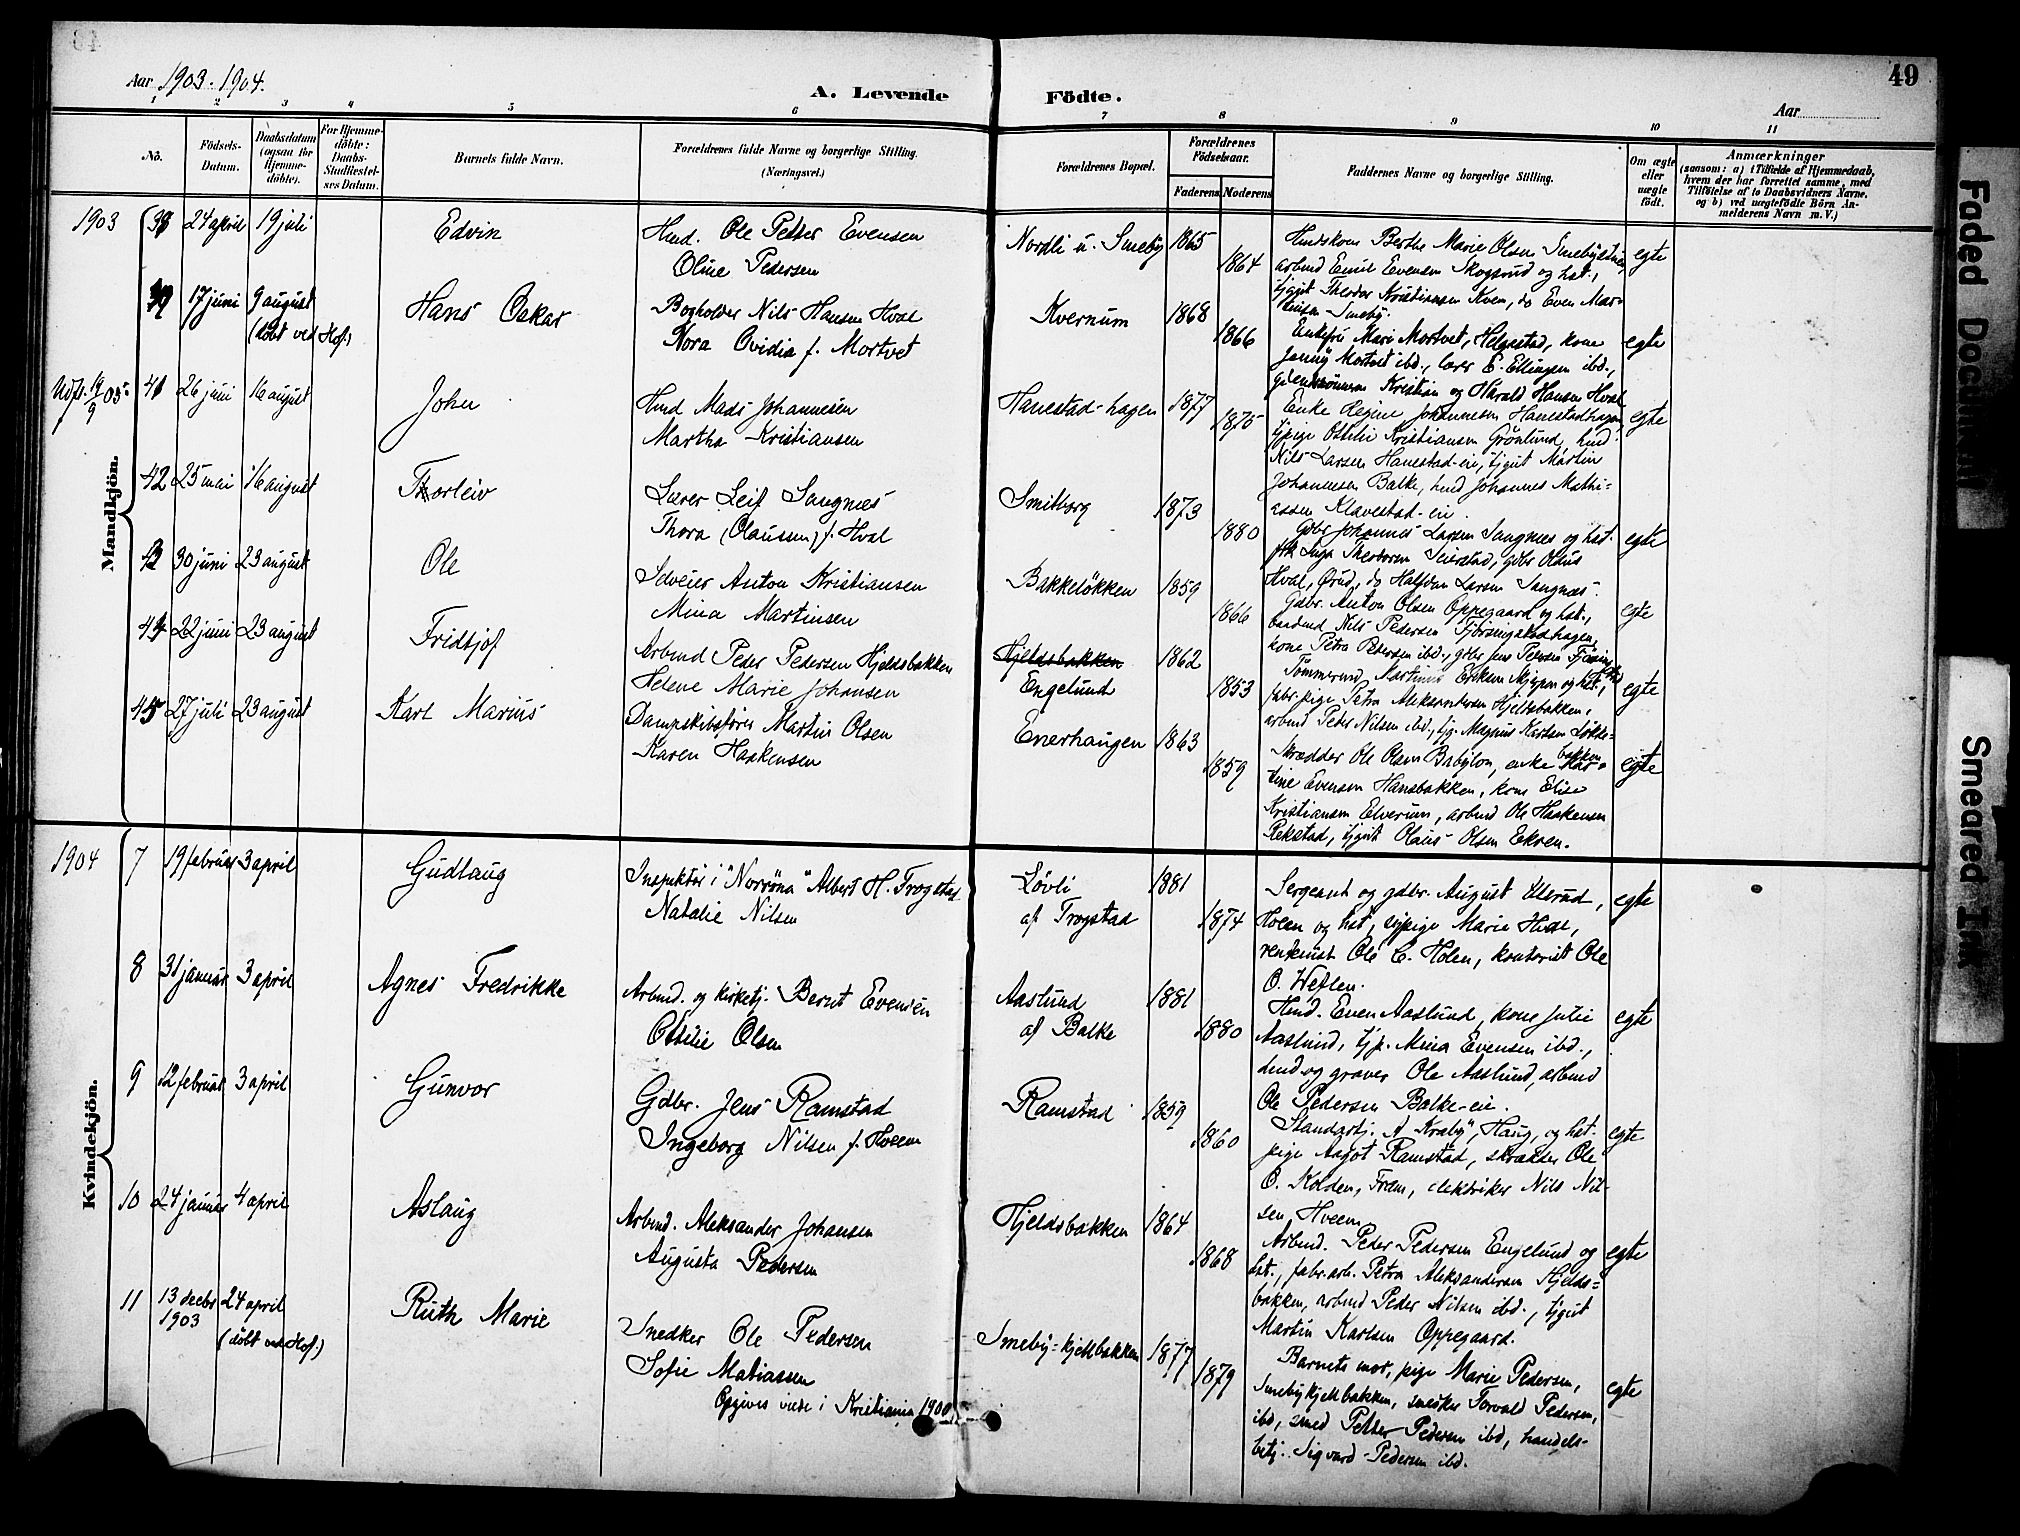 49
Aar 1903-1904.
A. Levende Födte.
Aar
1 2 3 4 5 6 7 8 9 10 11
No.
Födsels-Datum.
Daabsdatum (ogsaa for Hjemme-döbte).
For Hjemme-döbte: Daabs-Stadfæstel-ses Datum.
Barnets fulde Navn.
Forældrenes fulde Navne og borgerlige Stilling. (Næringsvei.)
Forældrenes Bopæl.
Forældrenes Födselsaar.
Faderens Moderens
Faddernes Navne og borgerlige Stilling.
Om ægte eller uægte födt.
Anmærkninger
(saasom: a) i Tilfælde af Hjemmedaab, hvem der har forrettet samme, med Tilföielse af to Daabsvidners Navne. og b) ved uægtefödte Börn An-melderens Navn m. V.)
Mandkjön.
1903 38 24 april 19 juli
Edvin
Hmd. Ole Petter Evensen
Oline Pedersen
Nordli u. Smeby 1865
1864
Hmdskone Berthe Marie Olsen Smebystuen,
arbmd Emil Evensen Skogsrud og hst.,
tjgut Theodor Kristiansen Kven, do Even Mar-
tinsen Smeby.
egte
39 17 juni 9 august
(döbt ved Hof.)
Hans Oskar
Bogholder Nils Hansen Hval
Nora Ovidia f. Mortvet
Kvernum 1868
1866
Enkefru Mari Mortvet, Helgestad, kone
Jenny Mortvet ibd., lærer E. Ellingsen ibd.,
gdmdssönnerne Kristian og Harald Hansen Hval
egte
Udfl. 19/9 05. 41 26 juni 16 august
John
Hmd Mads Johannesen
Martha Kristiansen
Hanestad-hagen 1877
1875
Enke Regine Johannesen Hanestadhagen,
tjpige Ottilie Kristiansen Grönlund, hmd
Nils Larsen Hanestad-eie, tjgut Martin
Johannesen Balke, hmd Johannes Mathi-
assen Klavestad-eie.
egte
42 25 mai 16 august
Thorleiv
Lærer Leif Sangnæs
Thora (Olaussen) f. Hval
Smitborg 1873
1880
Gdbr Johannes Larsen Sangnæs og hst.
frk Inga Theodorsen Seierstad, gdbr Olaus
Hval, Örud, do Halfdan Larsen Sangnæs.
egte
43 30 juni 23 august
Ole
Selveier Anton Kristiansen
Mina Martinsen
Bakkelökken 1859
1866
Gdbr. Anton Olsen Oppegaard og hst.,
baadmd Nils Pedersen Fjörsingstadhagen,
kone Petra Pedersen ibd., gdbr Jens Pedersen
egte
44 22 juni 23 august
Fridtjof
Arbmd Peder Pedersen Hjeldsbakken
Helene Marie Johansen
Hjeldsbakken
Engelund
1862
1853
Tömmermd. Martinus Eriksen og hst.,
fabr.pige Petra Aleksandersen Hjeldsbakken,
arbmd Peder Nilsen ibd., tjg. Magnus Karlsen Lökke-
bakken
egte
45 27 juli 23 august
Karl Marius
Dampskibsförer Martin Olsen
Karen Haakensen
Enerhaugen 1863
1859
Skrædder Ole Olsen Babylon, enke Kar-
tine Evensen Hansbakken, kone Elise
Kristiansen Elverum, arbmd Ole Haakensen
Rekstad, tjgut Olaus Olsen Ekren.
egte
Kvindekjön.
1904 7 19 februar 3 april
Gudlaug
Inspektör i "Norröna" Albert H. Trogstad
Natalie Nilsen
Lövli
af Trogstad
1881
1874
Sergeant og gdbr. August Ulsrud,
Hveen og hst, tjpige Marie Hval,
rentenist Ole C. Holen, kontorist Ole
O. Weflen.
egte
8 31 januar 3 april
Agnes Fredrikke
Arbmd. og kirketj. Bernt Evensen
Ottilie Olsen
Aaslund
af Balke
1881
1880
Hmd. Even Aaslund, kone Julie
Aaslund, tjp. Mina Evensen ibd.,
hmd og graver Ole Aaslund, arbmd
Ole Pedersen Balke-eie.
egte
9 12 februar 3 april
Gunvor
Gdbr. Jens Ramstad
Ingeborg Nilsen f. Hveem
Ramstad 1859
1860
Standartj. A. Kraby, Haug, og hst.
pige Aagot Ramstad, skrædder Ole
O. Kolden, Frem, elektriker Nils Nil-
sen, Hveem
egte
10 24 januar 4 april
Aslaug
Arbmd. Aleksander Johansen
Augusta Pedersen
Hjeldsbakken 1864
1868
Arbmd. Peder Pedersen Engelund og
hst., fabr.arb. Petra Aleksandersen Hjelds-
bakken, arbmd Peder Nilsen ibd., tjgut
Martin Karlsen Oppegaard.
egte
11 13 decbr 1903 24 april
(döbt ved Hof.)
Ruth Marie
Snedker Ole Pedersen
Sofie Matiassen
Opgives viede i Kristiania 1900
Smeby-kjelbakken 1877
1879
Barnets mor, pige Marie Pedersen,
Smebykjelbakken, snedker Torvald Pedersen,
ibd, smed Petter Pedersen ibd, handels-
betj. Sigvard Pedersen ibd.
egte
Faded Document
Smeared Ink